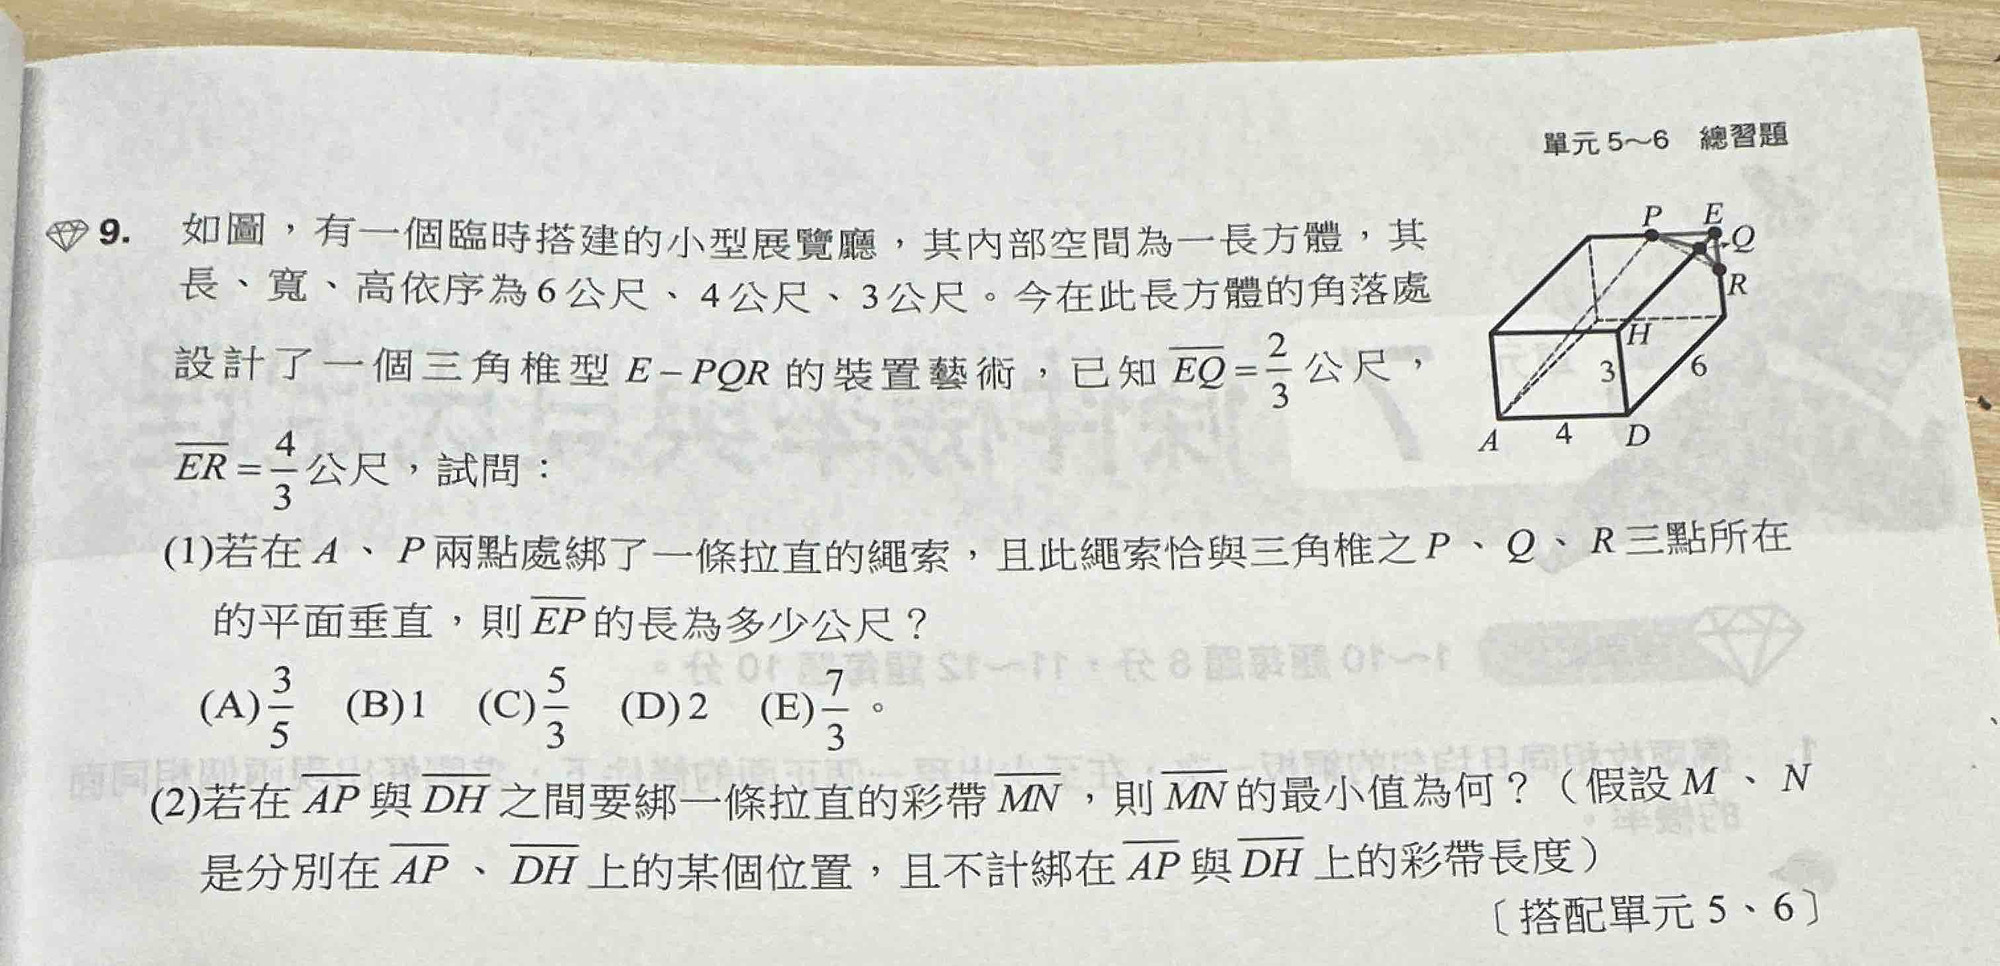 單元 5～6　總習題
9. 如圖，有一個臨時搭建的小型展覽廳，其內部空間為一長方體，其
長、寬、高依序為 6 公尺、4 公尺、3 公尺。今在此長方體的角落處
設計了一個三角椎型 E－PQR 的裝置藝術，已知 \overline{EQ}=\frac{2}{3} 公尺，
\overline{ER}=\frac{4}{3} 公尺，試問：
P E Q R H 3 6 A 4 D
(1)若在 A 、 P 兩點處綁了一條拉直的繩索，且此繩索恰與三角椎之 P 、 Q 、 R 三點所在
的平面垂直，則 \overline{EP} 的長為多少公尺？
(A)\frac{3}{5} (B)1 (C)\frac{5}{3} (D)2 (E)\frac{7}{3} 。
(2)若在 \overline{AP} 與 \overline{DH} 之間要綁一條拉直的彩帶 \overline{MN} ，則 \overline{MN} 的最小值為何？（假設 M 、 N
是分別在 \overline{AP} 、 \overline{DH} 上的某個位置，且不計綁在 \overline{AP} 與 \overline{DH} 上的彩帶長度）
〔搭配單元 5、6〕